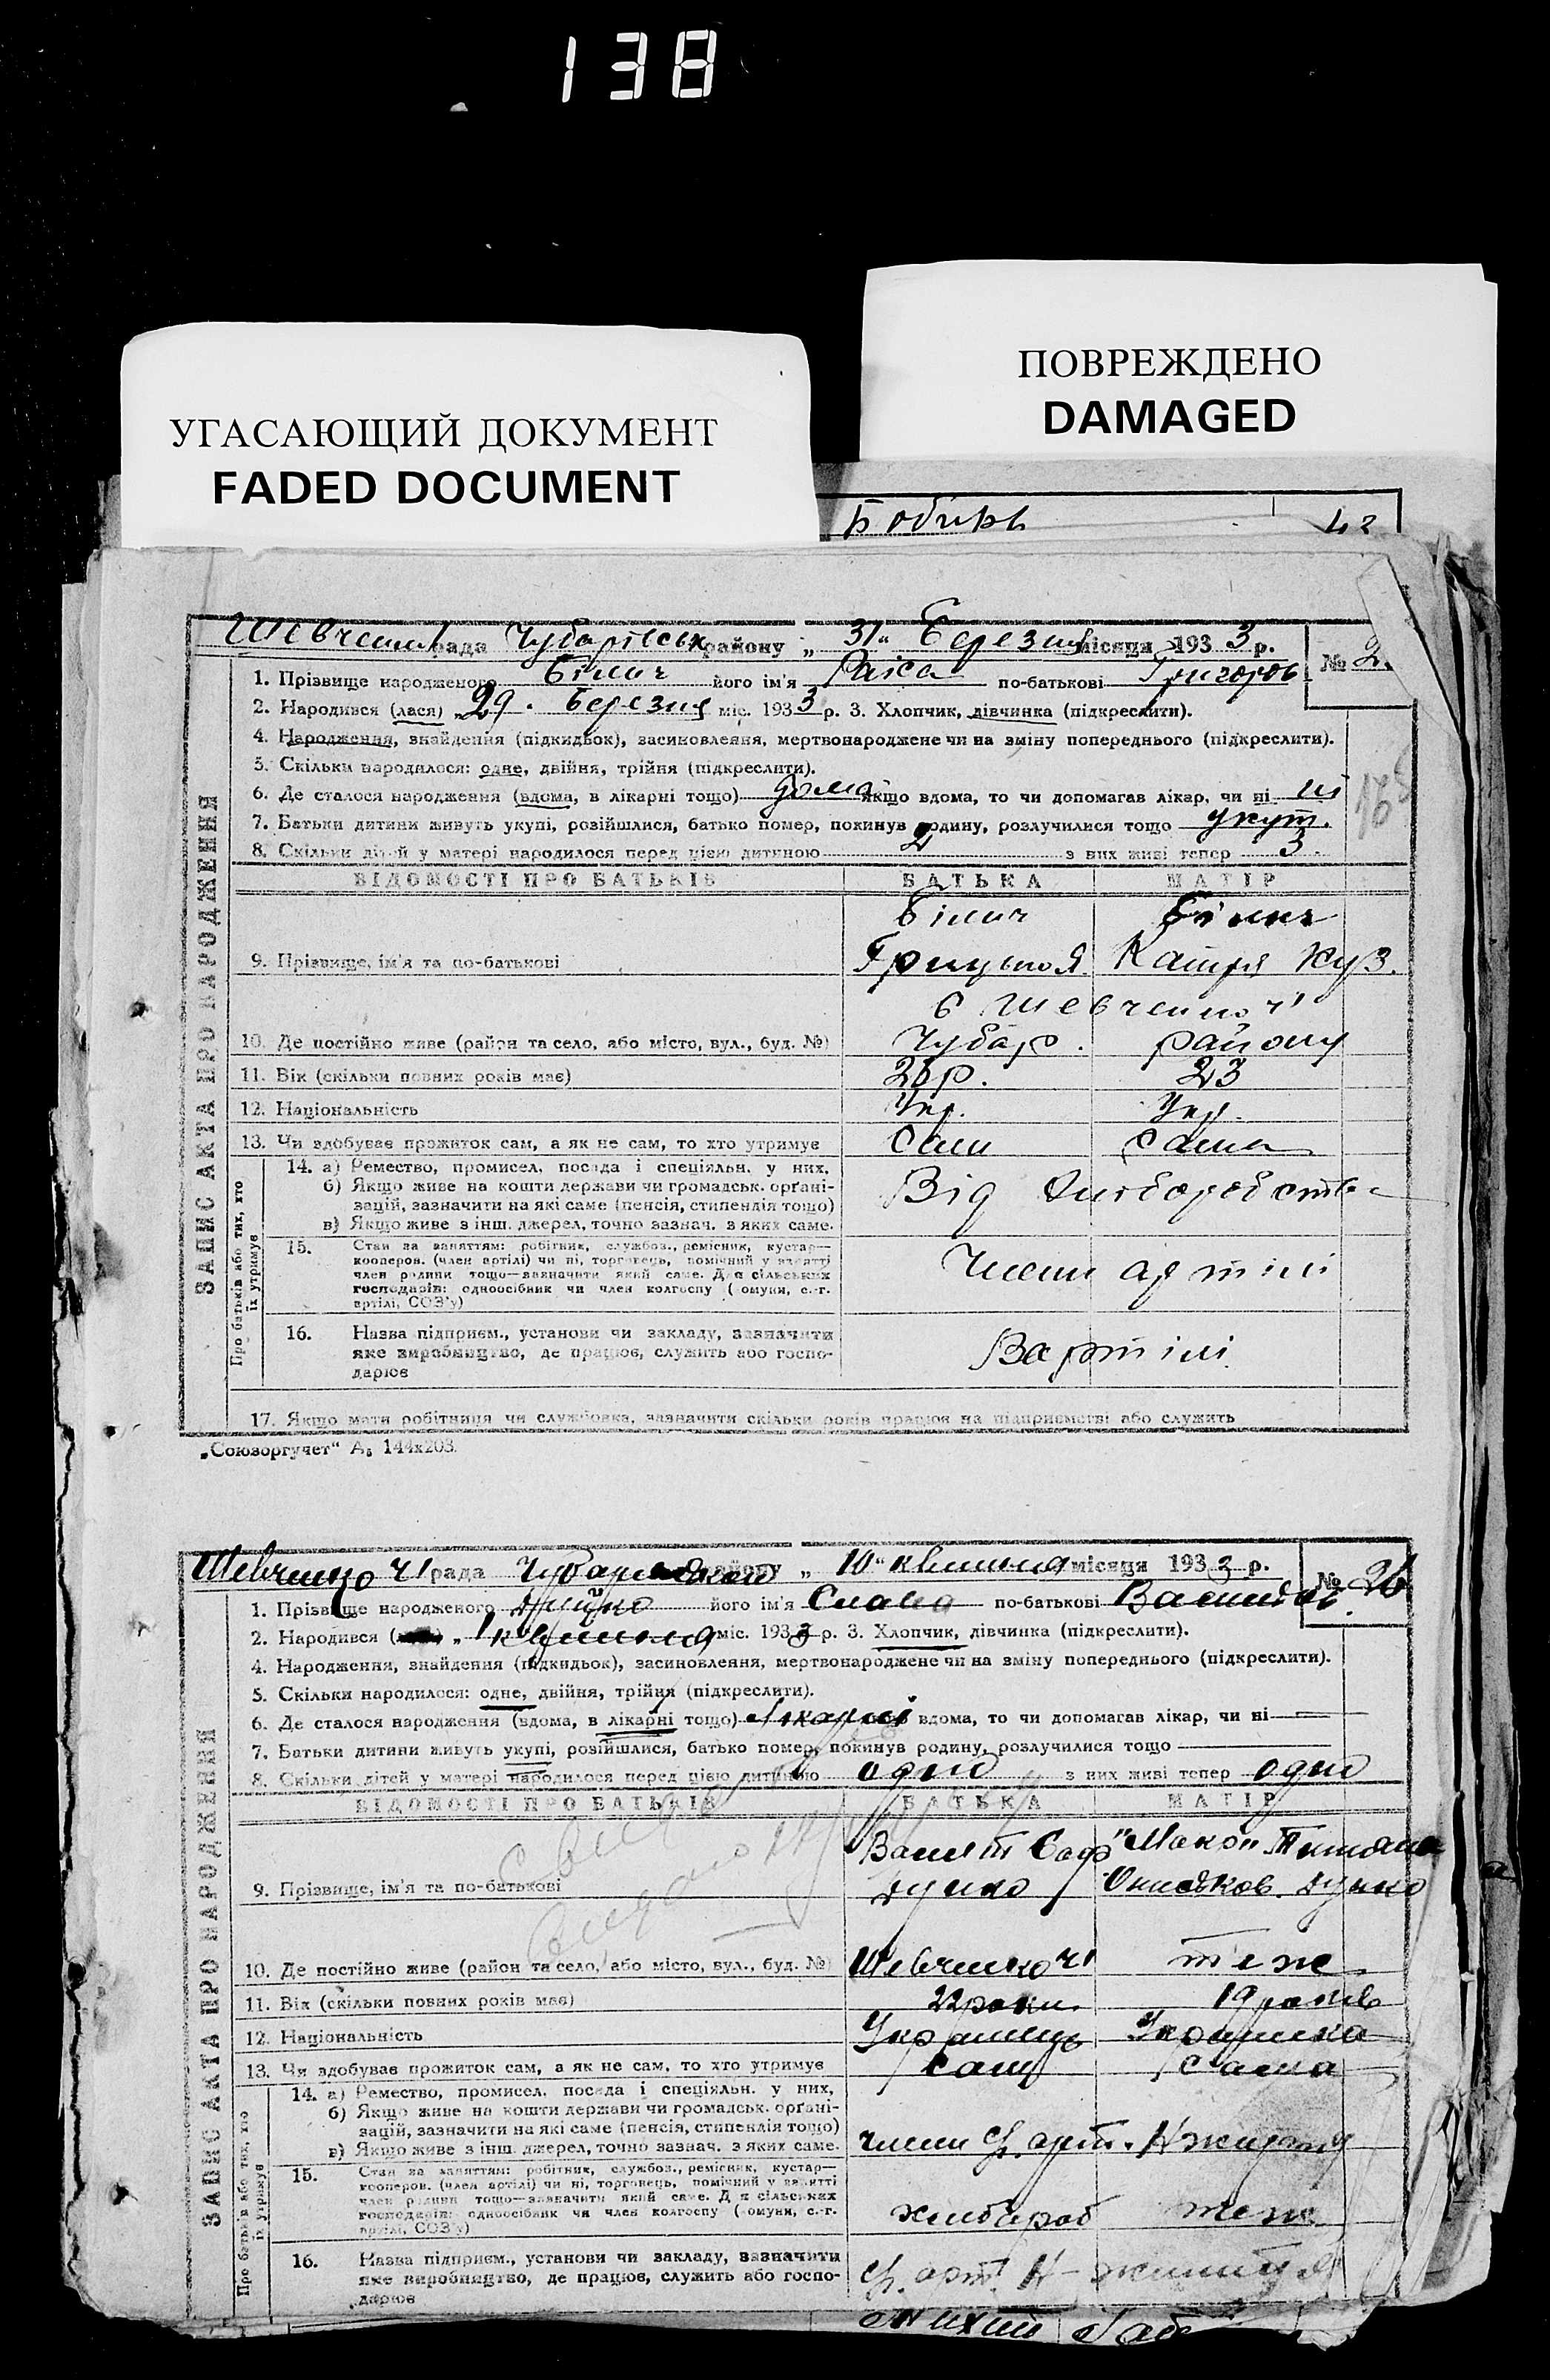 138
ПОВРЕЖДЕНО
DAMAGED
УГАСАЮЩИЙ ДОКУМЕНТ
FADED DOCUMENT
Бобирь 42
рада Чубарівськ району „ 31 " Березня місяця 193 3 р. №
1. Прізвище народженого Білич його ім'я Раїса по-батькові Григоров
2. Народився (лася) „ 29 . березня міс. 193 3 р. 3. Хлопчик, дівчинка (підкреслити).
4. Народження, знайдення (підкидьок), засиновлення, мертвонароджене чи на зміну попереднього (підкреслити).
5. Скільки народилося: одне, двійня, трійня (підкреслити).
6. Де сталося народження (вдома, в лікарні тощо) дома якщо вдома, то чи допомагав лікар, чи ні ні
7. Батьки дитини живуть укупі, розійшлися, батько помер, покинув родину, розлучилися тощо укуп.
8. Скільки дітей у матері народилося перед цією дитиною 2 з них живі тепер 3
ВІДОМОСТІ ПРО БАТЬКІВ БАТЬКА МАТІР
Білич Білич
9. Прізвище, ім'я та по-батькові Катря Куз.
с Шевченко
10. Де постійно живе (район та село, або місто, вул., буд. №) Чубар. району
11. Вік (скільки повних років має) 23
12. Національність Укр. Укр.
13. Чи здобуває прожиток сам, а як не сам, то хто утримує Сам сама
ЗАПИС АКТА ПРО НАРОДЖЕННЯ
Про батьків або тих, хто їх утримує
14. а) Ремество, промисел, посада і спеціяльн. у них,
б) Якщо живе на кошти держави чи громадськ. орґані-
зацій, зазначити на які саме (пенсія, стипендія тощо)
в) Якщо живе з інш. джерел, точно зазнач. з яких саме.
Від
15. Стан за заняттям: робітник, службов., ремісник, кустар—
кооперов. (член артілі) чи ні, торговець, помічний у занятті
член родини тощо—зазначити який саме. Для сільських
господарів: одноосібник чи член колгоспу (комуни, с.-г.
артілі, СОЗ'у)
Член артілі
16. Назва підприєм., установи чи закладу, зазначити
яке виробництво, де працює, служить або госпо-
дарює
В артілі
17. Якщо мати робітниця чи службовка, зазначити скільки років працює на підприємстві або служить
„Союзоргучет" А₅ 144х203.
рада району „ 10 " квітня місяця 193 3 р. № 26
1. Прізвище народженого його ім'я по-батькові
2. Народився „ 1 квітня міс. 193 3 р. 3. Хлопчик, дівчинка (підкреслити).
4. Народження, знайдення (підкидьок), засиновлення, мертвонароджене чи на зміну попереднього (підкреслити).
5. Скільки народилося: одне, двійня, трійня (підкреслити).
6. Де сталося народження (вдома, в лікарні тощо) лікарні вдома, то чи допомагав лікар, чи ні
7. Батьки дитини живуть укупі, розійшлися, батько помер, покинув родину, розлучилися тощо
8. Скільки дітей у матері народилося перед цією дитиною одно з них живі тепер одно
ВІДОМОСТІ ПРО БАТЬКІВ БАТЬКА МАТІР
9. Прізвище, ім'я та по-батькові
10. Де постійно живе (район та село, або місто, вул., буд. №) теж
11. Вік (скільки повних років має) 22 роки 19 років
12. Національність Українець Українка
13. Чи здобуває прожиток сам, а як не сам, то хто утримує сам сама
ЗАПИС АКТА ПРО НАРОДЖЕННЯ
Про батьків або тих, хто їх утримує
14. а) Ремество, промисел, посада і спеціяльн. у них,
б) Якщо живе на кошти держави чи громадськ. орґані-
зацій, зазначити на які саме (пенсія, стипендія тощо)
в) Якщо живе з інш. джерел, точно зазнач. з яких саме.
член арт.
15. Стан за заняттям: робітник, службов., ремісник, кустар—
кооперов. (член артілі) чи ні, торговець, помічний у занятті
член родини тощо—зазначити який саме. Для сільських
господарів: одноосібник чи член колгоспу (комуни, с.-г.
артілі, СОЗ'у)
хлібороб теж
16. Назва підприєм., установи чи закладу, зазначити
яке виробництво, де працює, служить або госпо-
дарює
арт.